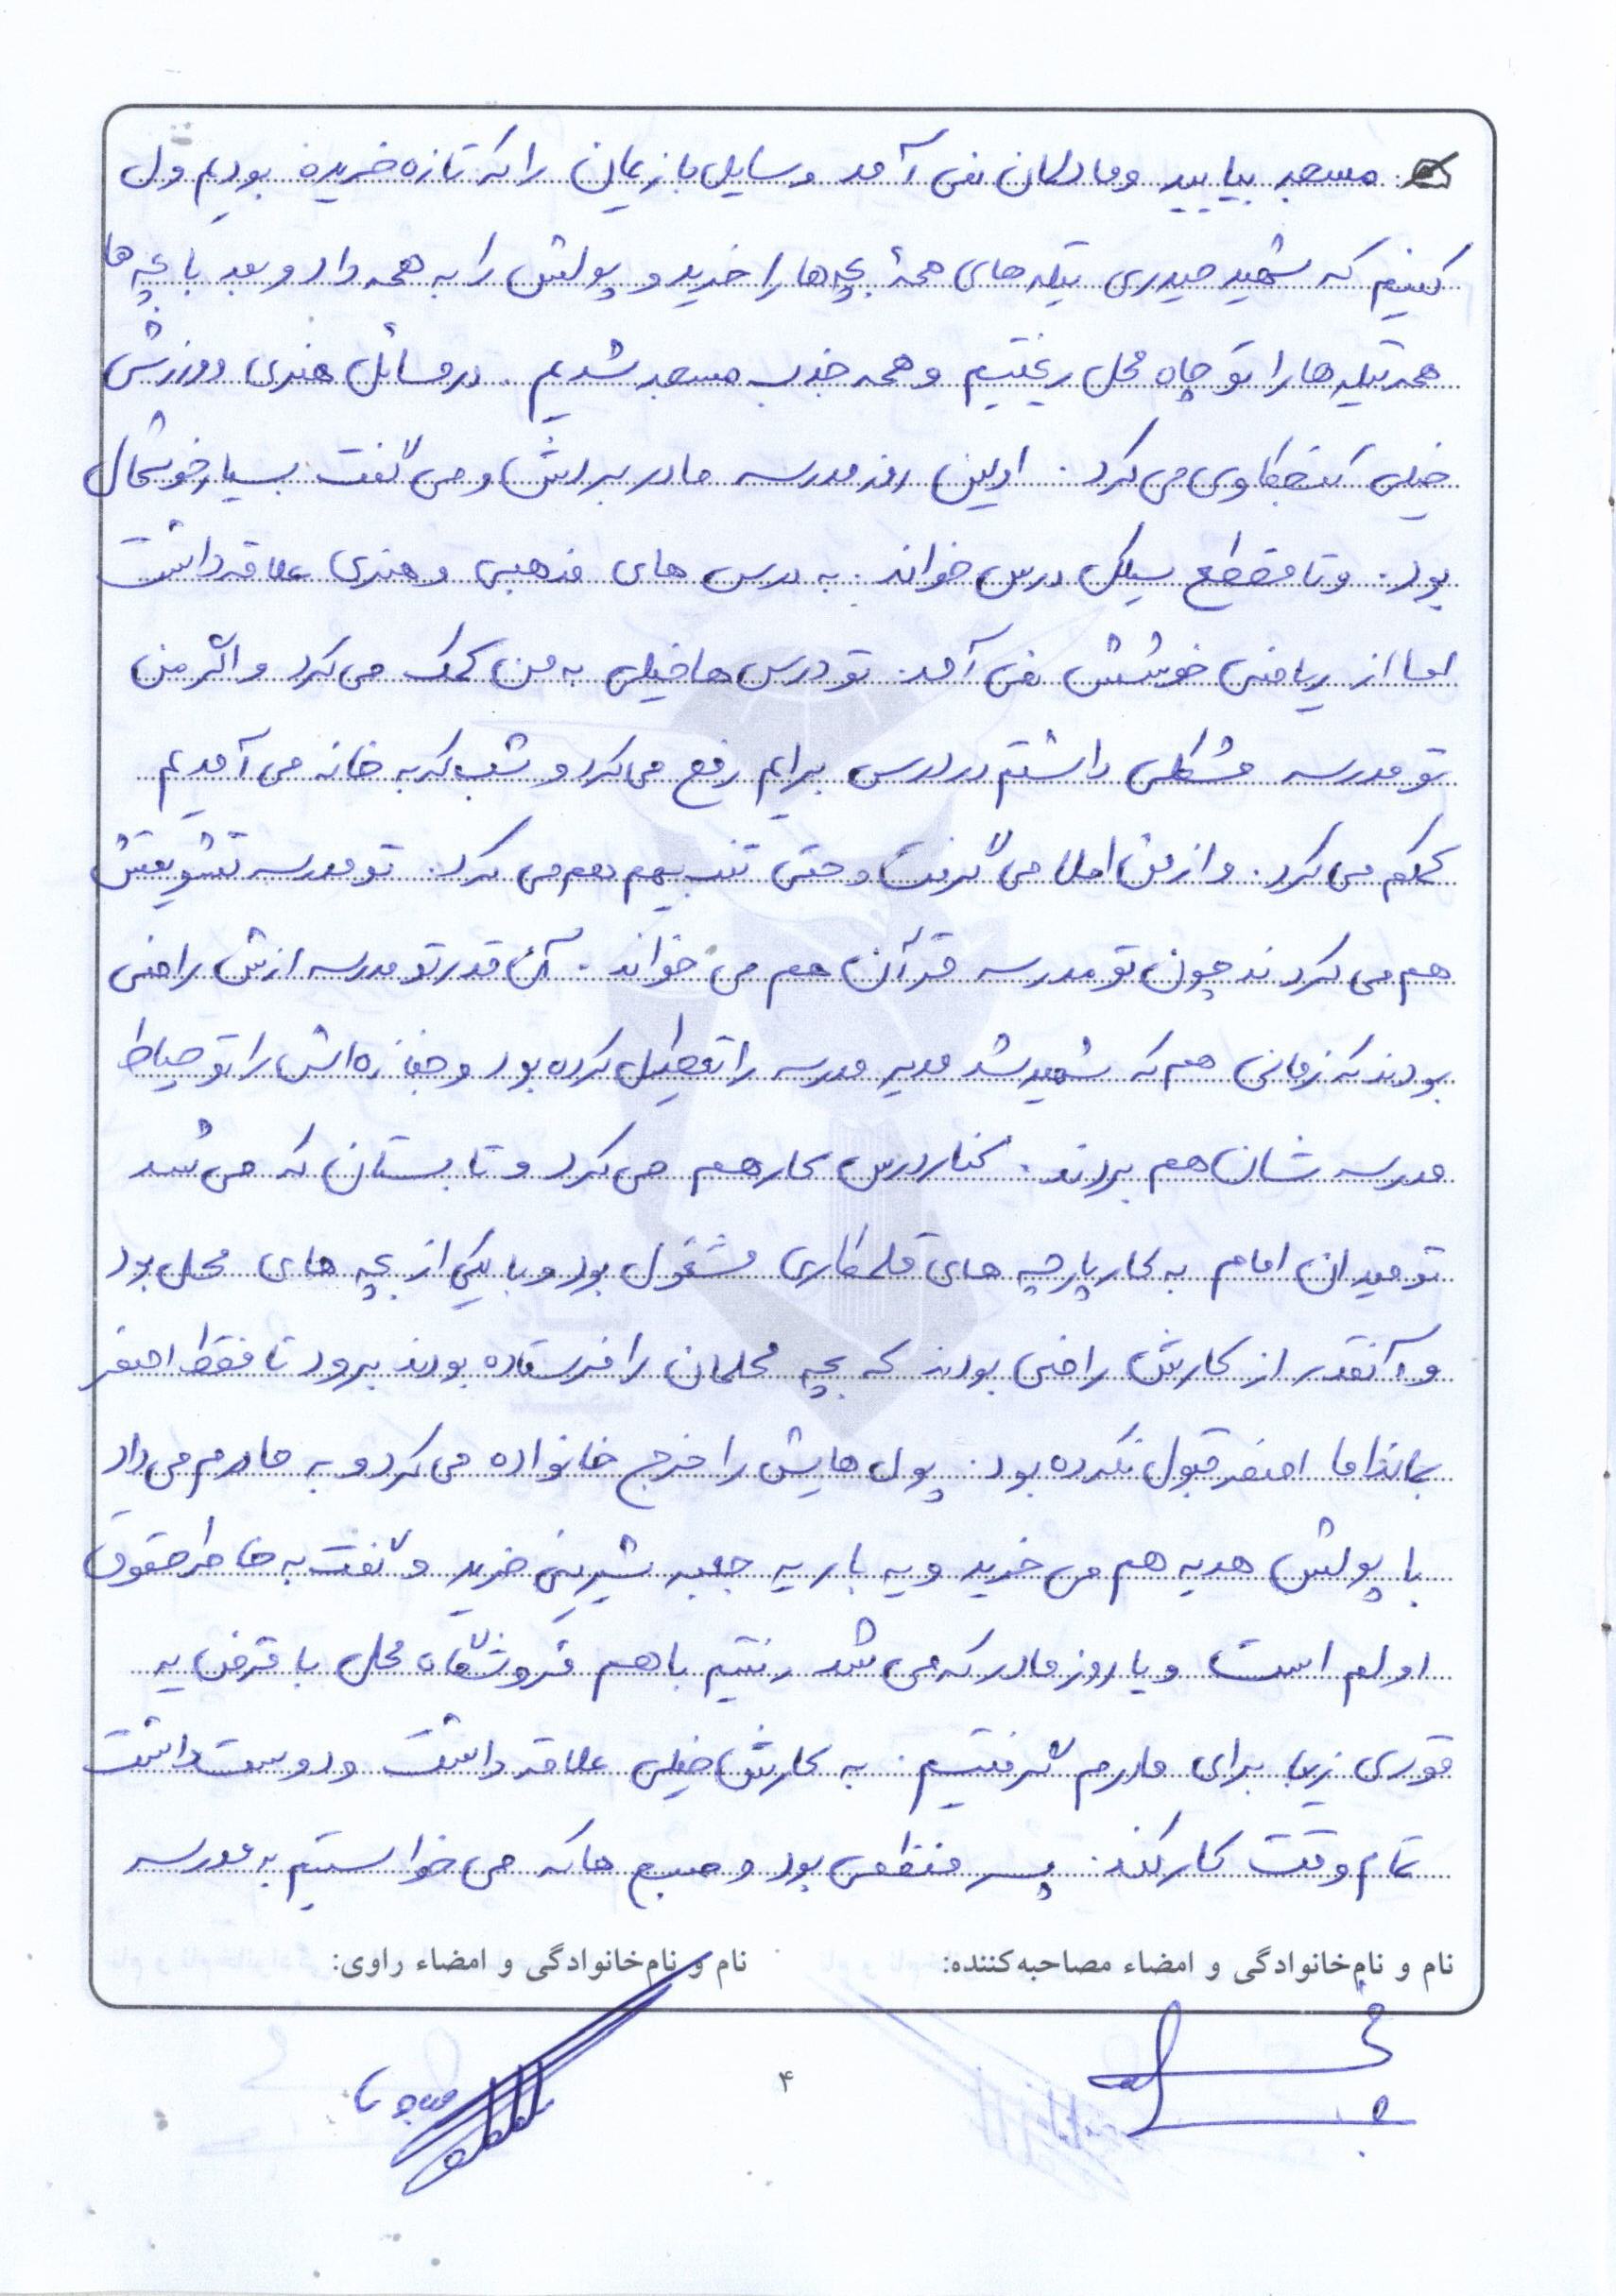 مسجد بیایید و ما دلمان نمی آمد وسایل بازیمان را که تازه خریده بودیم ول
کنیم که شهید حیدری تیله های همۀ بچه ها را خرید و پولش را به همه داد و بعد با بچه ها
همه تیله ها را تو چاه محل ریختیم و همه جذب مسجد شدیم . در مسائل هنری و ورزش
خیلی کنجکاوی می کرد . اولین روز مدرسه مادر بردش و می گفت بسیار خوشحال
بود . و تا مقطع سیکل درس خواند . به درس های مذهبی و هنری علاقه داشت
اما از ریاضی خوشش نمی آمد . تو درس ها خیلی به من کمک می کرد و اگر من
تو مدرسه مشکلی داشتم در درس برایم رفع می کرد و شب که به خانه می آمدیم
کمکم می کرد . و از من املا می گرفت و حتی تنبیهم هم می کرد . تو مدرسه تشویقش
هم می کردند چون تو مدرسه قرآن هم می خواند . آن قدر تو مدرسه ازش راضی
بودند که زمانی هم که شهید شد مدیر مدرسه را تعطیل کرده بود و جنازه اش را تو حیاط
مدرسه شان هم بردند . کنار درس کار هم می کرد و تابستان که می شد
تو میدان امام به کار پارچه های قلمکاری مشغول بود و با یکی از بچه های محل بود
و آنقدر از کارش راضی بودند که بچه محلمان را فرستاده بودند برود تا فقط اصغر
بماند اما اصغر قبول نکرده بود . پول هایش را خرج خانواده می کرد و به مادرم می داد
با پولش هدیه هم می خرید و یه بار یه جعبه شیرینی خرید و گفت به خاطر حقوق
اولم است و یا روز مادر که می شد رفتیم باهم فروشگاه محل با قرض یه
قوری زیبا برای مادرم گرفتیم . به کارش خیلی علاقه داشت و دوست داشت
تمام وقت کار کند . پسر منظمی بود و صبح ها که می خواستیم به مدرسه
نام و نام‌خانوادگی و امضاء مصاحبه‌کننده: نام و نام‌خانوادگی و امضاء راوی:
۴